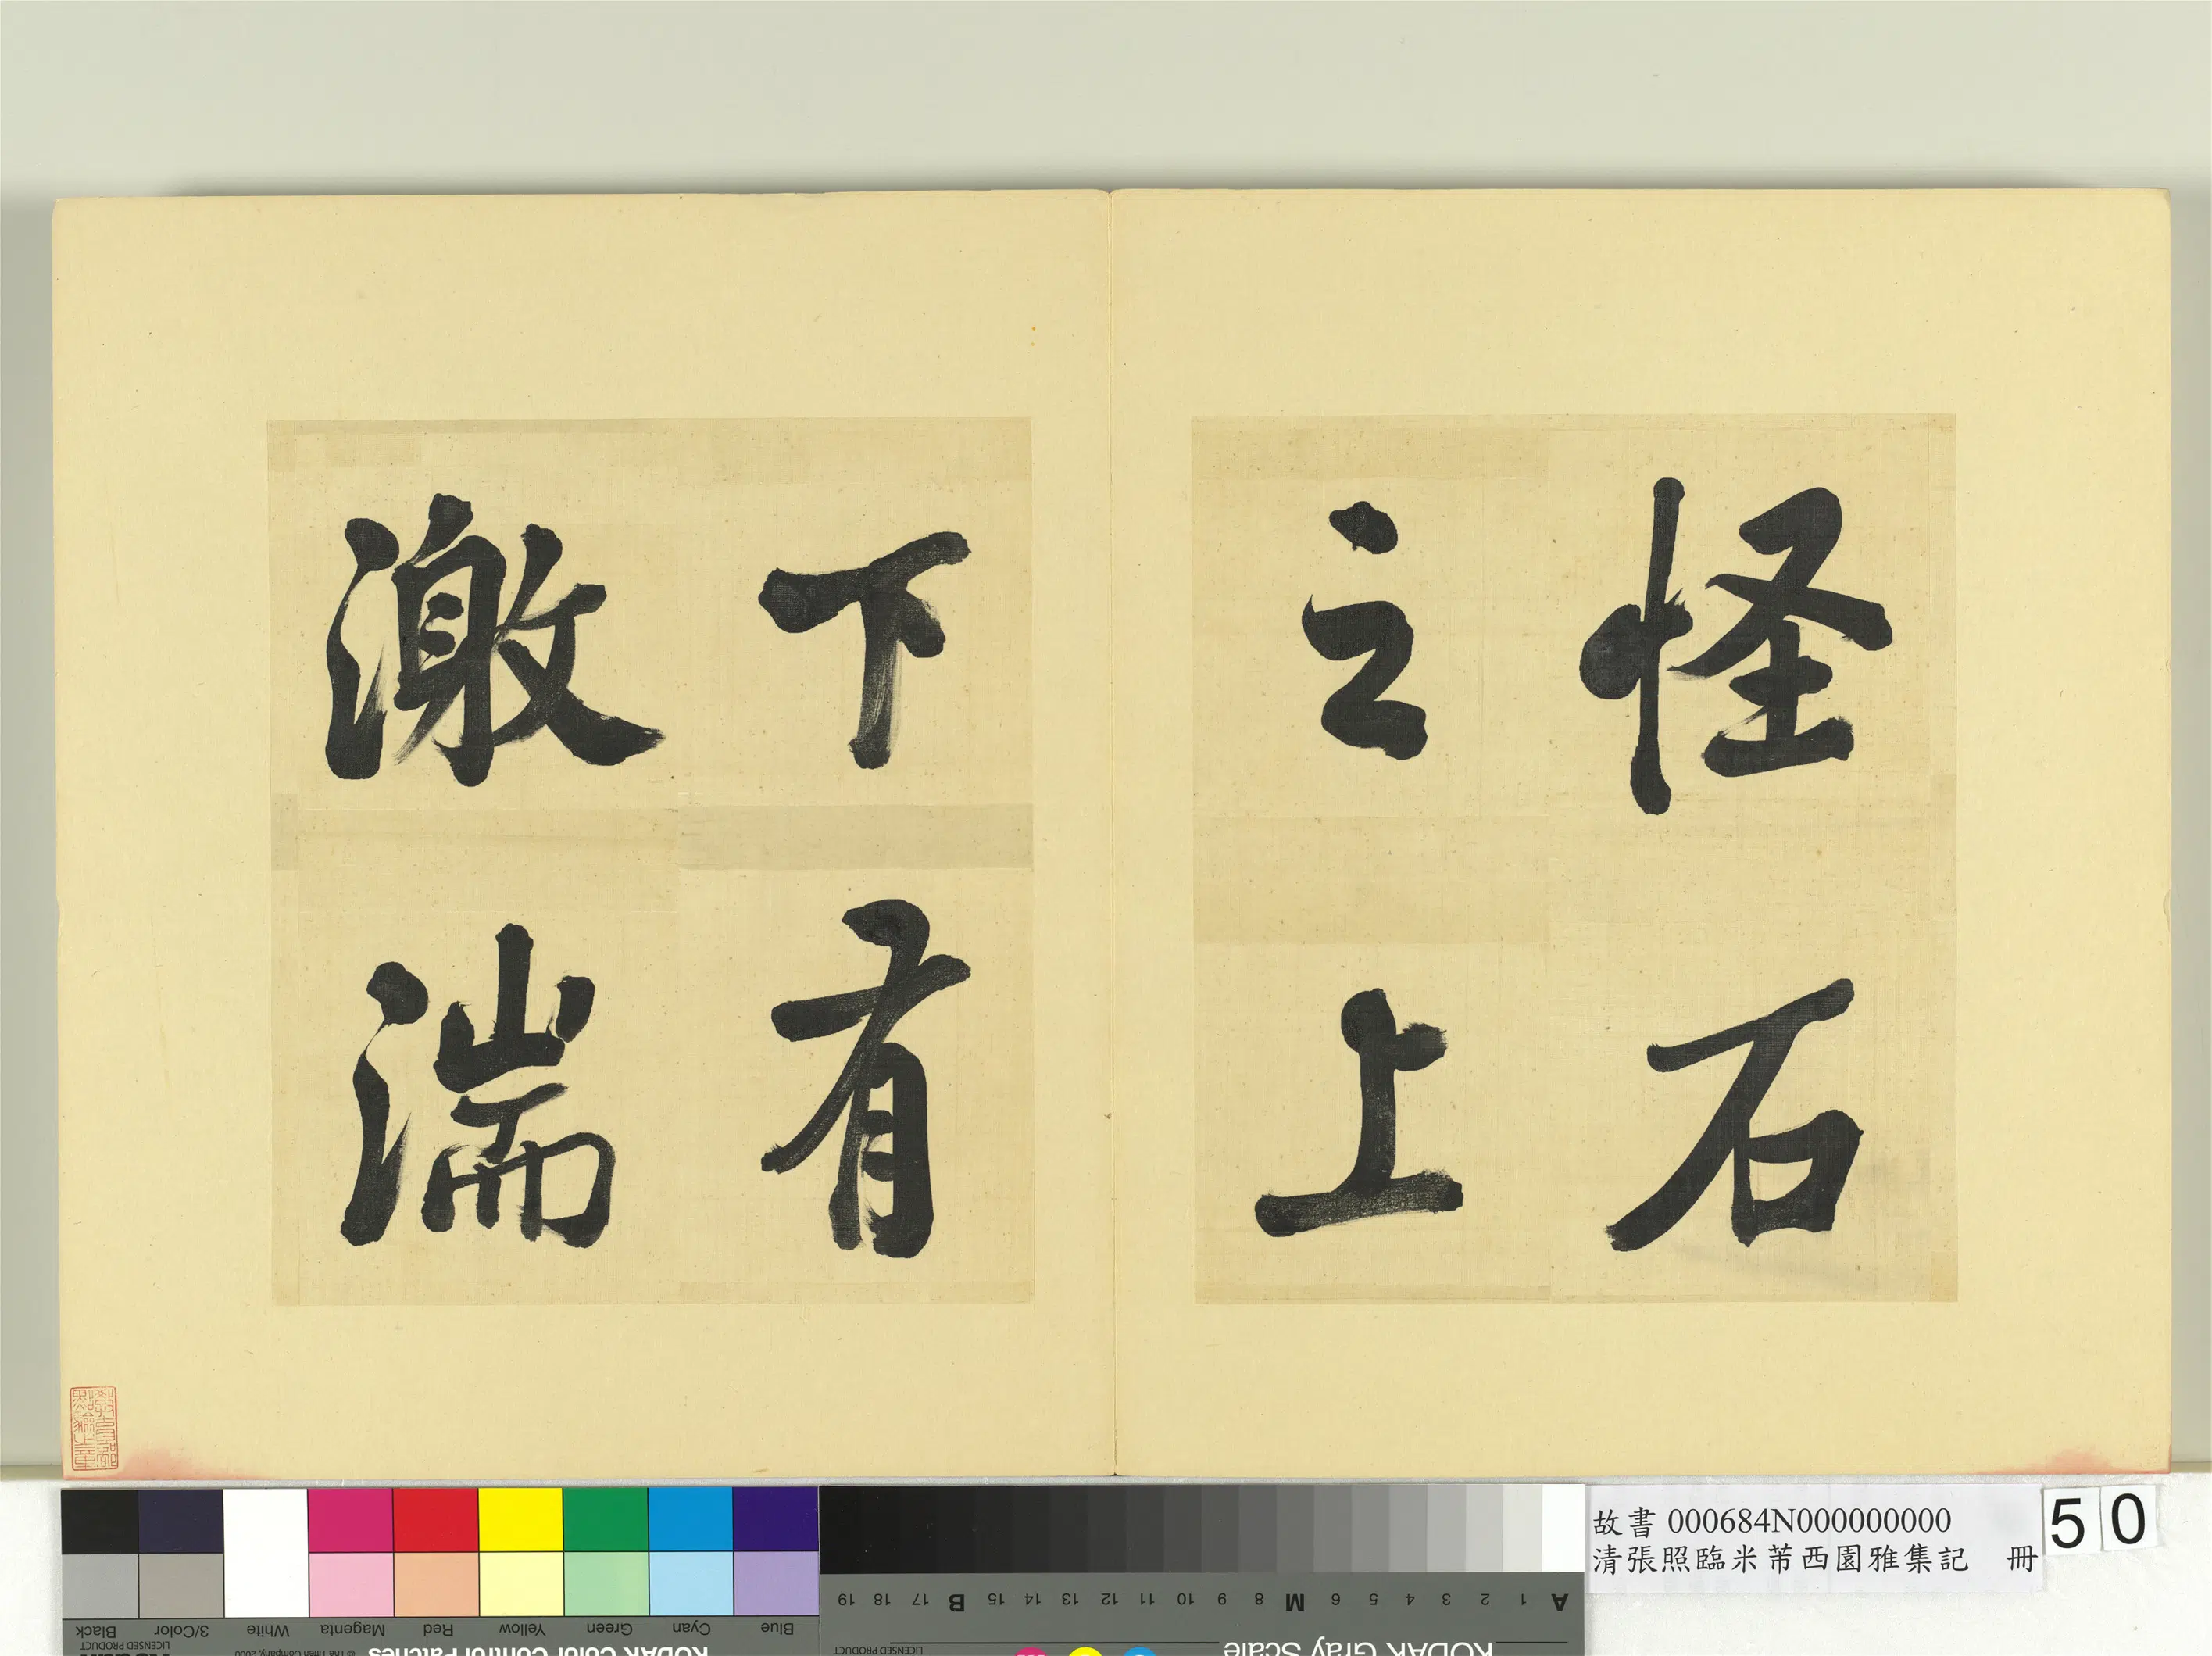 怪石
之上
下有
激湍
故書 000684N000000000
清張照臨米芾西園雅集記 冊
50
Black
3/Color
White
Magenta
Red
Yellow
Green
Cyan
Blue
LICENSED PRODUCT
© The Tiffen Company, 2000
KODAK Color Control Patches
A 1 2 3 4 5 6 M 8 9 10 11 12 13 14 15 B 17 18 19
KODAK Gray Scale
LICENSED PRODUCT